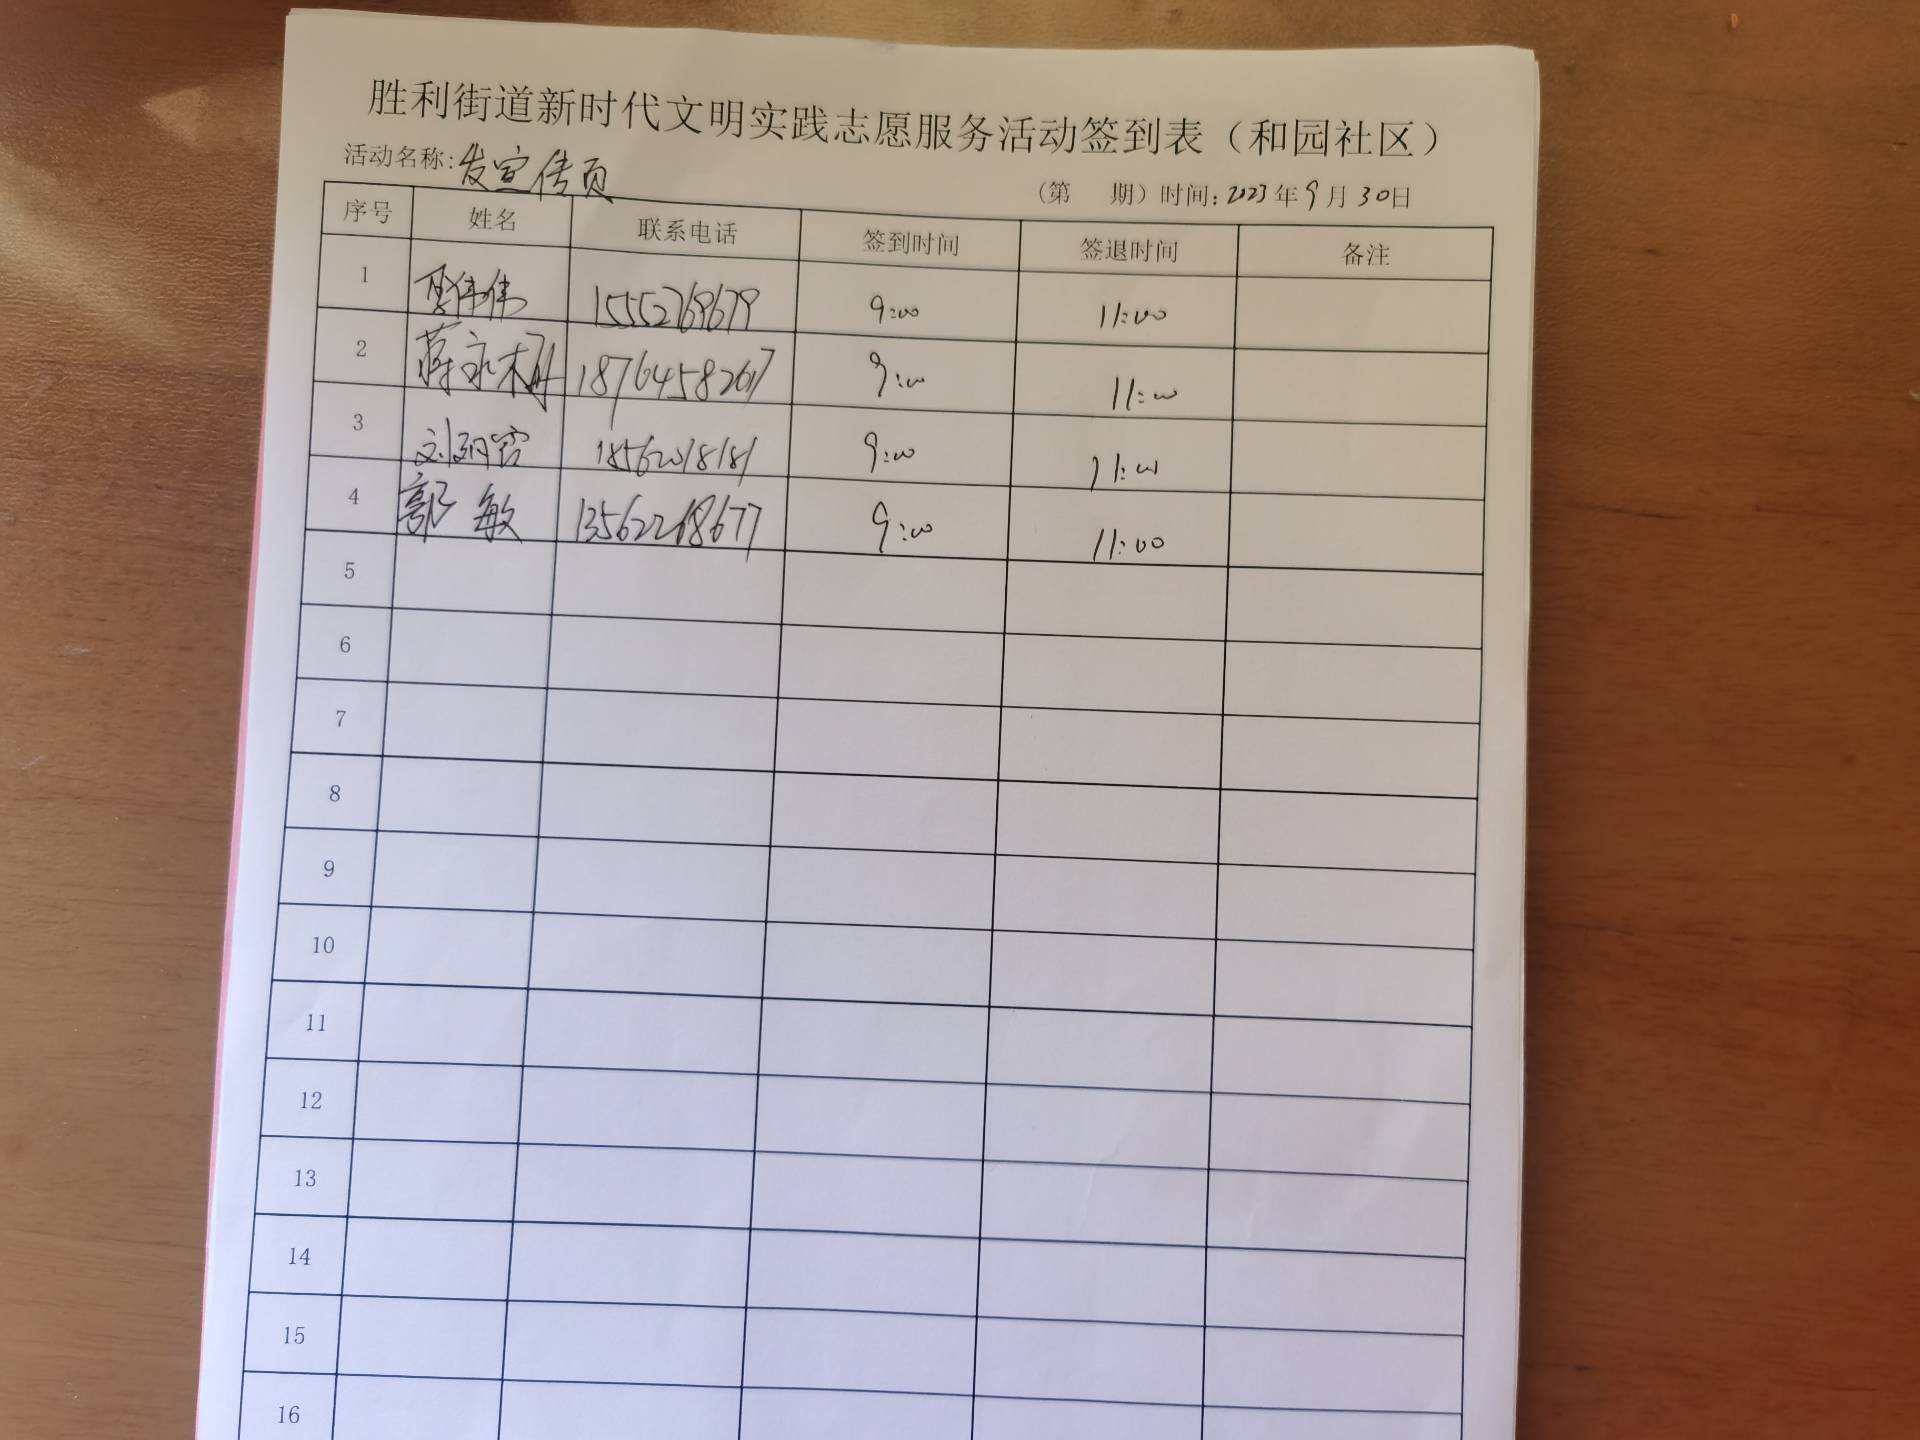 胜利街道新时代文明实践志愿服务活动签到表（和园社区）
活动名称:发宣传页
（第 期）时间:2023年9月30日
序号 姓名 联系电话 签到时间 签退时间 备注
1 伟伟 15552769679 9:00 11:00
2 蒋永 18764582617 9:00 11:00
3 刘 18562018181 9:00 11:00
4 郭敏 13562268677 9:00 11:00
5
6
7
8
9
10
11
12
13
14
15
16